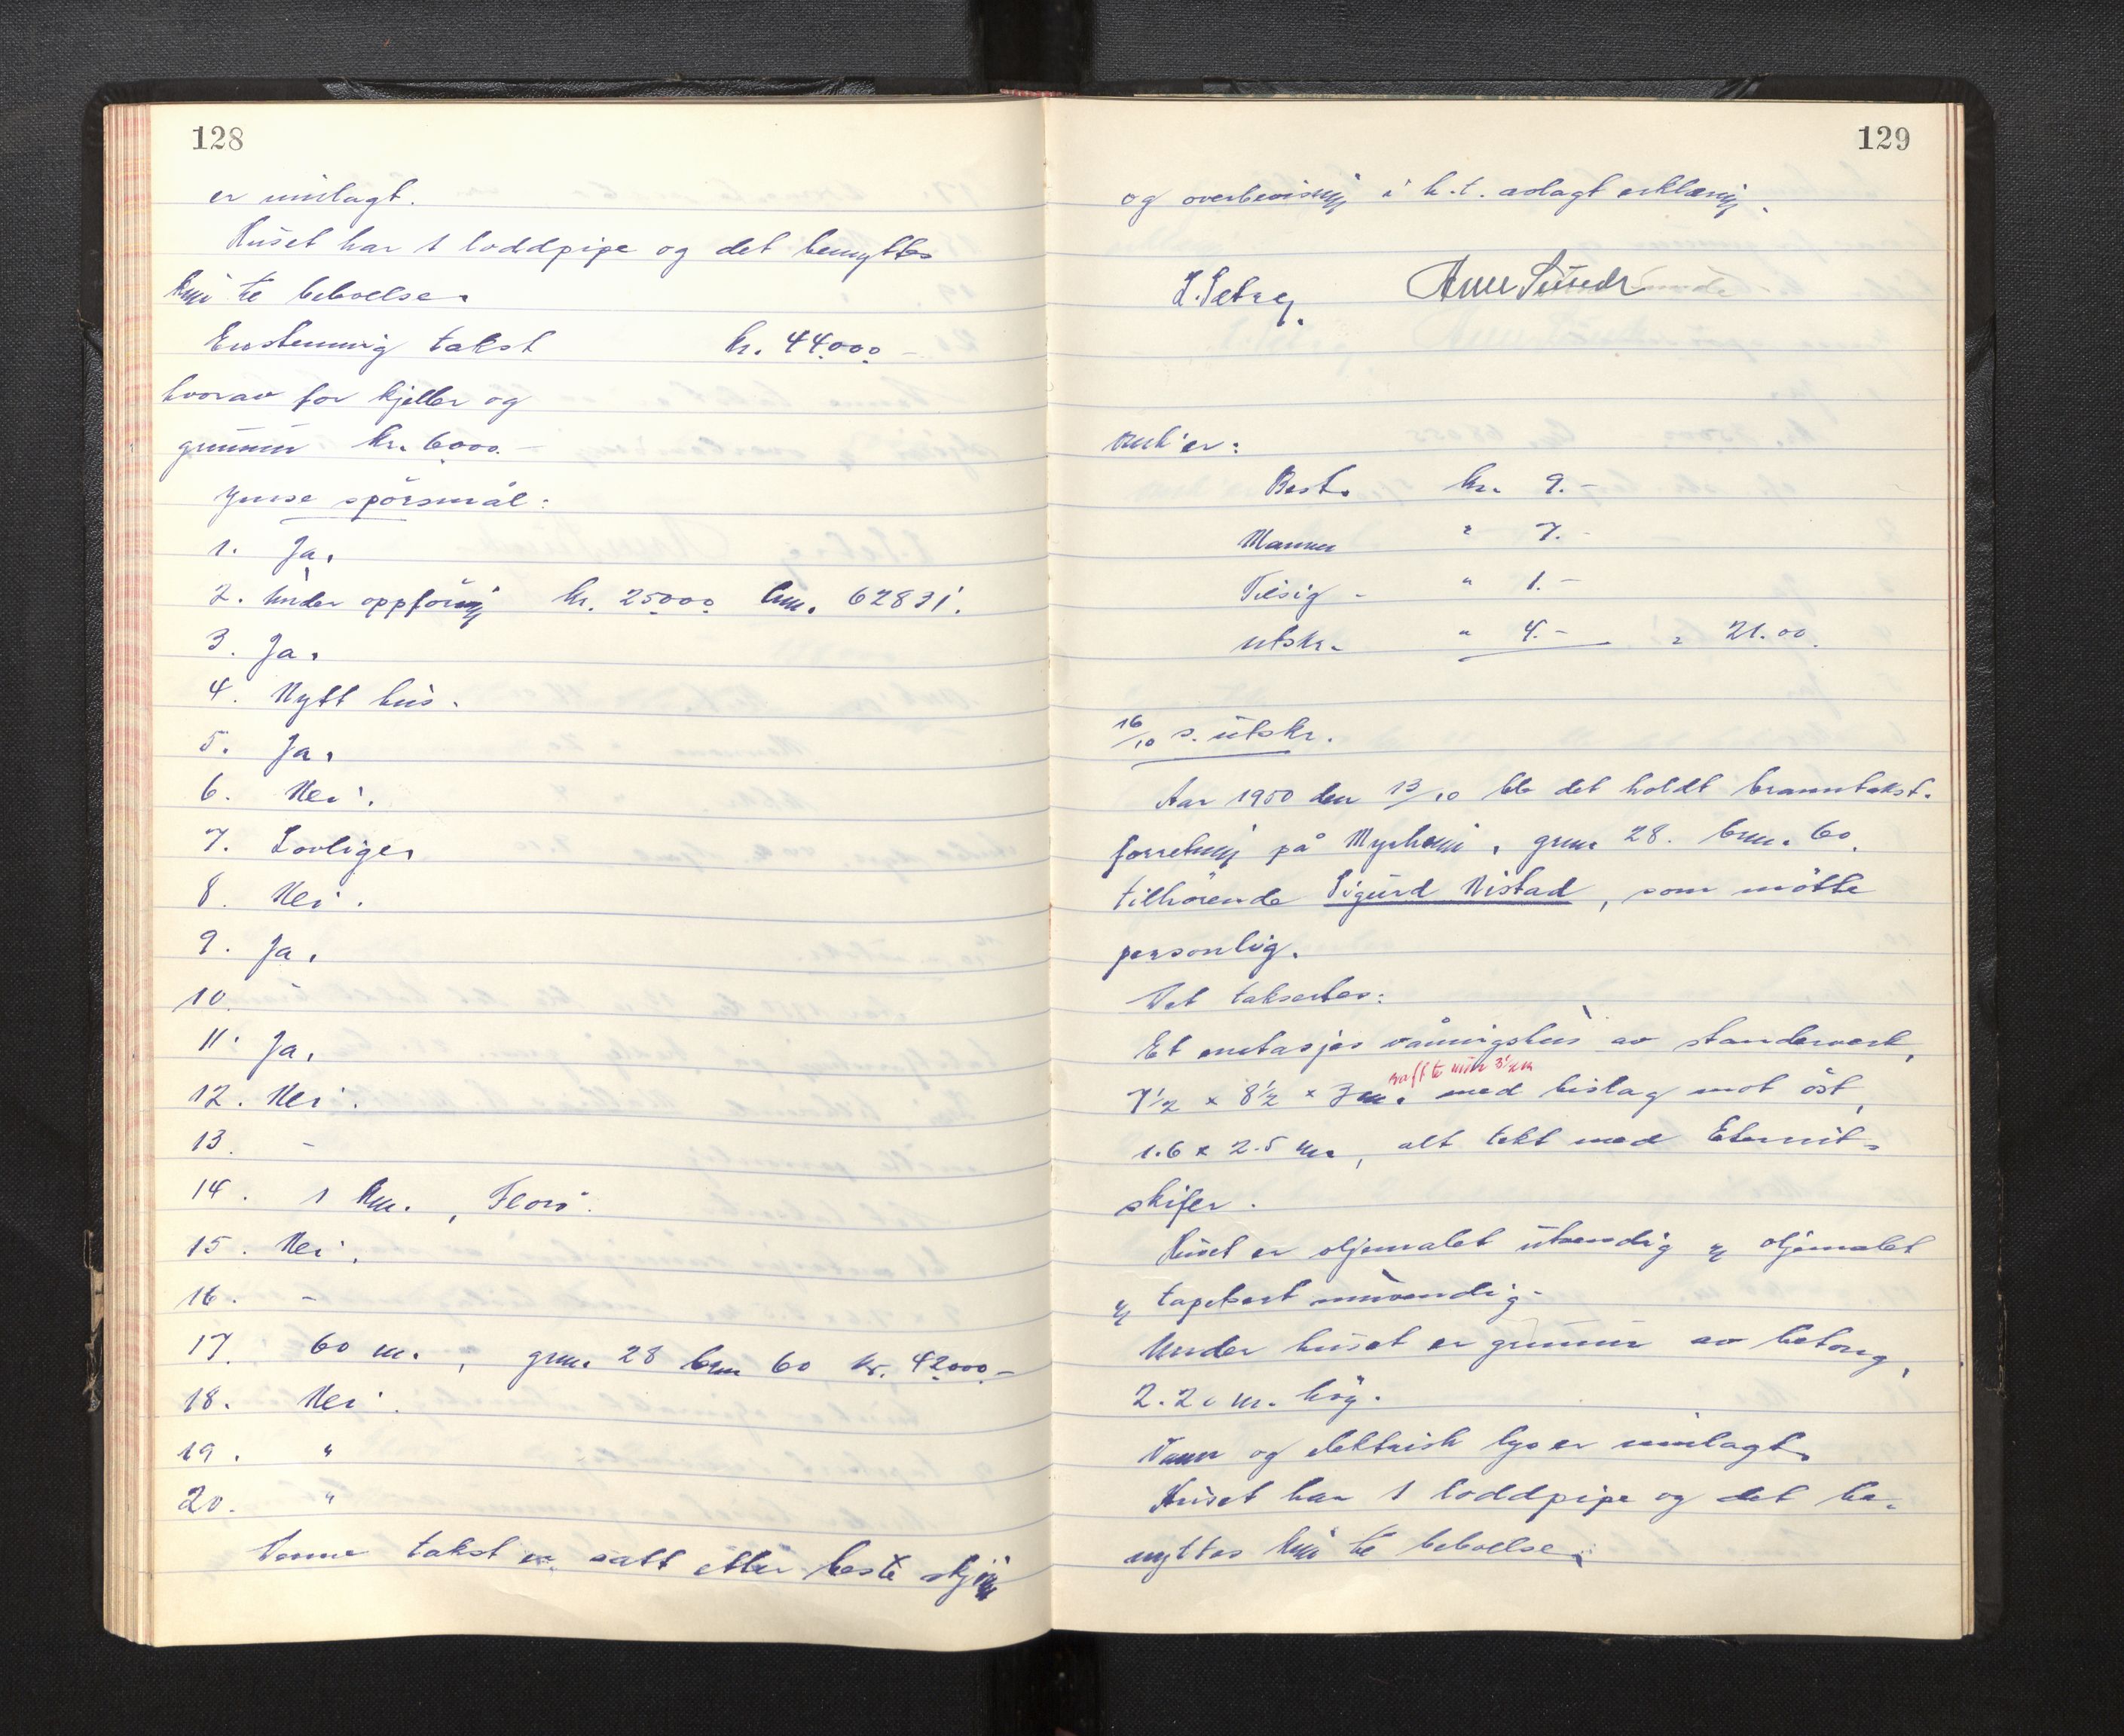 128
er innlagt.
Huset har 1 loddpipe og det benyttes
kun til beboelse.
Enstemmig takst kr. 44000 -
hvorav for kjeller og
grunnmur kr. 6000.-
Ymse spørsmål:
1. Ja.
2. Under oppføring kr. 25000 bnr. 62831.
3. Ja.
4. Nytt hus.
5. Ja.
6. Nei.
7. Lovlige.
8. Nei.
9. Ja.
10.
11. Ja.
12. Nei.
13. -
14. 1 km., Florø.
15. Nei.
16. -
17. 60 m., gnr. 28 bnr 60 kr. 42000.-
18. Nei.
19. "
20. "
Denne takst er satt etter beste skjønn
129
og overbevisning i h.t. avlagt erklæring.
Omk'er:
Best. kr. 9.-
Mannen " 7.-
Tilsig - " 1.-
utskr. " 4.- = 21.00.
16/10 s. utskr.
Aar 1950 den 13/10 ble det holdt branntakst-
forretning på Myrheim, gnr. 28. bnr. 60.
tilhørende Sigurd Nistad, som møtte
personlig.
Det taksertes:
Et enetasjes våningshus av standerverk,
7½ x 8½ x 3 m. med bislag mot øst,
1.6 x 2.5 m., alt tekt med Eternit-
skifer.
Huset er oljemalet utvendig og oljemalet
og tapetsert innvendig.
Under huset er grunnmur av betong,
2.20 m. høg.
Vann og elektrisk lys er innlagt.
Huset har 1 loddpipe og det be-
nyttes kun til beboelse.